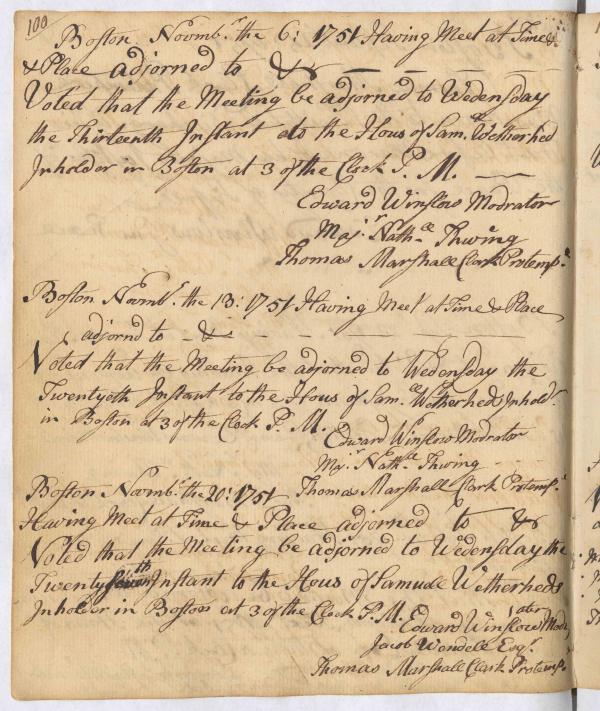 100
Boston Novmbr. the 6: 1751 Having Meet at Time &
& Place adjorned to &c
Voted that the Meeting be adjorned to Wedensday
the Thirteenth Instant at to the Hous of Saml. Wetherhed
Inholder in Boston at 3 of the Clock P. M.
Edward Winslow Modrator
Majr. Nathll. Thwing
Thomas Marshall Clark Protemp.
Boston Novmbr. the 13: 1751 Having Meet at Time & Place
adjornd to - &c
Voted that the Meeting be adjorned to Wedensday the
Twentyeth Instant to the Hous of Sam. Wetherheds Inholdr.
in Boston at 3 of the Clock P. M.
Edward Winslow Modrator
Majr. Nathll. Thwing
Boston Novmbr. the 20: 1751 Thomas Marshall Clark Protemp.
Having Meet at Time & Place adjorned to &c
Voted that the Meeting be adjorned to Wedensday the
Twenty Seventh Instant to the Hous of Samuel Wetherheds
Inholder in Boston at 3 of the Clock P. M.
Edward Winslow Modrator
Jacob Wendell Esqr.
Thomas Marshall Clark Protemp.